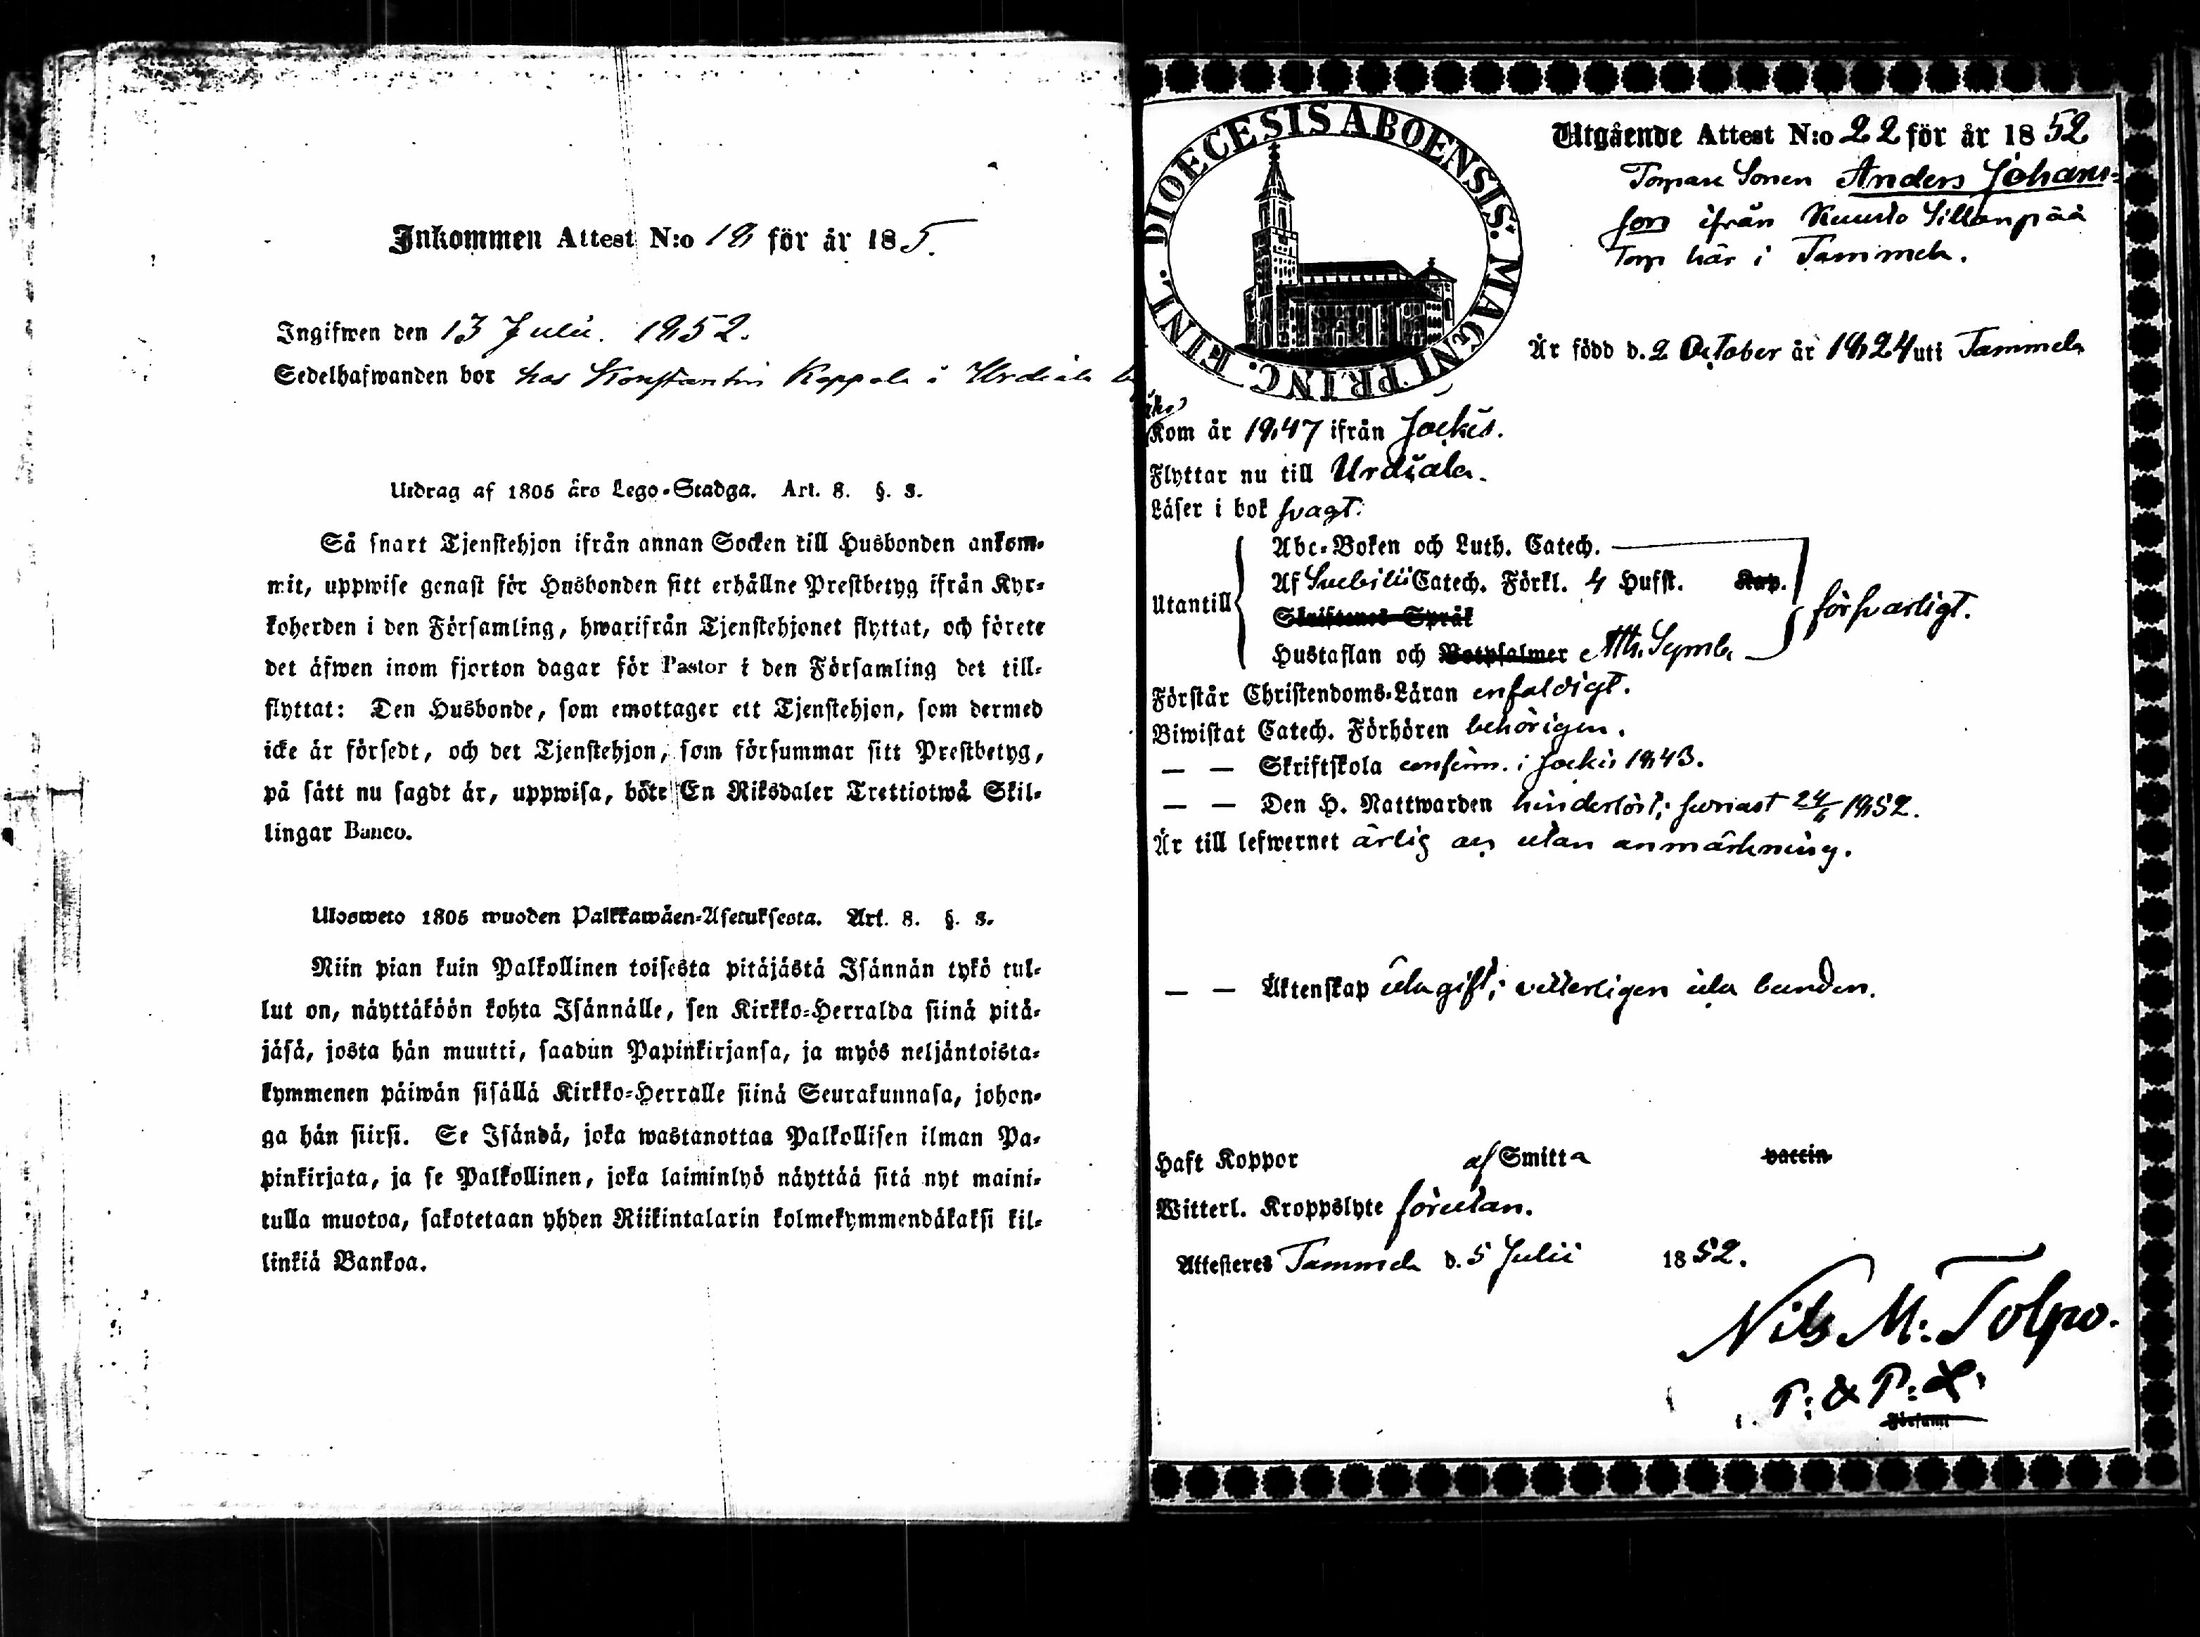 Inkommen Attest N:o 18 för år 185.
Ingifwen den 13 Julii. 1852.
Sedelhafwanden bor hos Konstantin Koppala i Urdiala
Utdrag af 1805 års Lego-Stadga. Art. 8. §. 3.
Så snart Tjenstehjon ifrån annan Socken till Husbonden ankom-
mit, uppwise genast för Husbonden sitt erhållne Prestbetyg ifrån Kyr-
koherden i den Församling, hwarifrån Tjenstehjonet flyttat, och förete
det äfwen inom fjorton dagar för Pastor i den Församling det till-
flyttat: Den Husbonde, som emottager ett Tjenstehjon, som dermed
icke är försedt, och det Tjenstehjon, som försummar sitt Prestbetyg,
på sätt nu sagdt är, uppwisa, böte En Riksdaler Trettiotwå Skil-
lingar Banco.
Ulosweto 1805 wuoden Palkkawäen-Asetuksesta. Art. 8. §. 3.
Niin pian kuin Palkollinen toisesta pitäjästä Isännän tykö tul-
lut on, näyttäköön kohta Isännälle, sen Kirkko-Herralda siinä pitä-
jäsä, josta hän muutti, saadun Papinkirjansa, ja myös neljäntoista-
kymmenen päiwän sisällä Kirkko-Herralle siinä Seurakunnasa, johon-
ga hän siirsi. Se Isändä, joka wastanottaa Palkollisen ilman Pa-
pinkirjata, ja se Palkollinen, joka laiminlyö näyttää sitä nyt maini-
tulla muotoa, sakotetaan yhden Riikintalarin kolmekymmendäkaksi kil-
linkiä Bankoa.
DIOECESIS ABOENSIS. MAGNI PRINC. FINL.
Utgående Attest N:o 22 för år 1852
Torpare Sonen Anders Johans-
son ifrån Kuusto Sillanpää
Torp här i Tammela.
Är född d. 2 October år 1824 uti Tammela
Kom år 1847 ifrån Jockis.
Flyttar nu till Urdiala.
Läser i bok svagt.
Abc-Boken och Luth. Catech.
Utantill Af Svebilii Catech. Förkl. 4 Hufst. Kap. försvarligt.
Skriftenes Språk
Hustaflan och Botpsalmer Ath. Symb.
Förstår Christendoms-Läran enfaldigt.
Biwistat Catech. Förhören behörigen.
— — Skriftskola confirm. i Jockis 1843.
— — Den H. Nattwarden hinderlöst; senast 24/6 1852.
Är till lefwernet ärlig och utan anmärkning.
— — Äktenskap ute ogift; vetterligen ute bunden.
Haft Koppor af Smitta vaccin
Witterl. Kroppslyte förutan.
Attesteres Tammela d. 5 Julii 1852.
Nils M: Tolpo.
P: & P: L.
i Församl